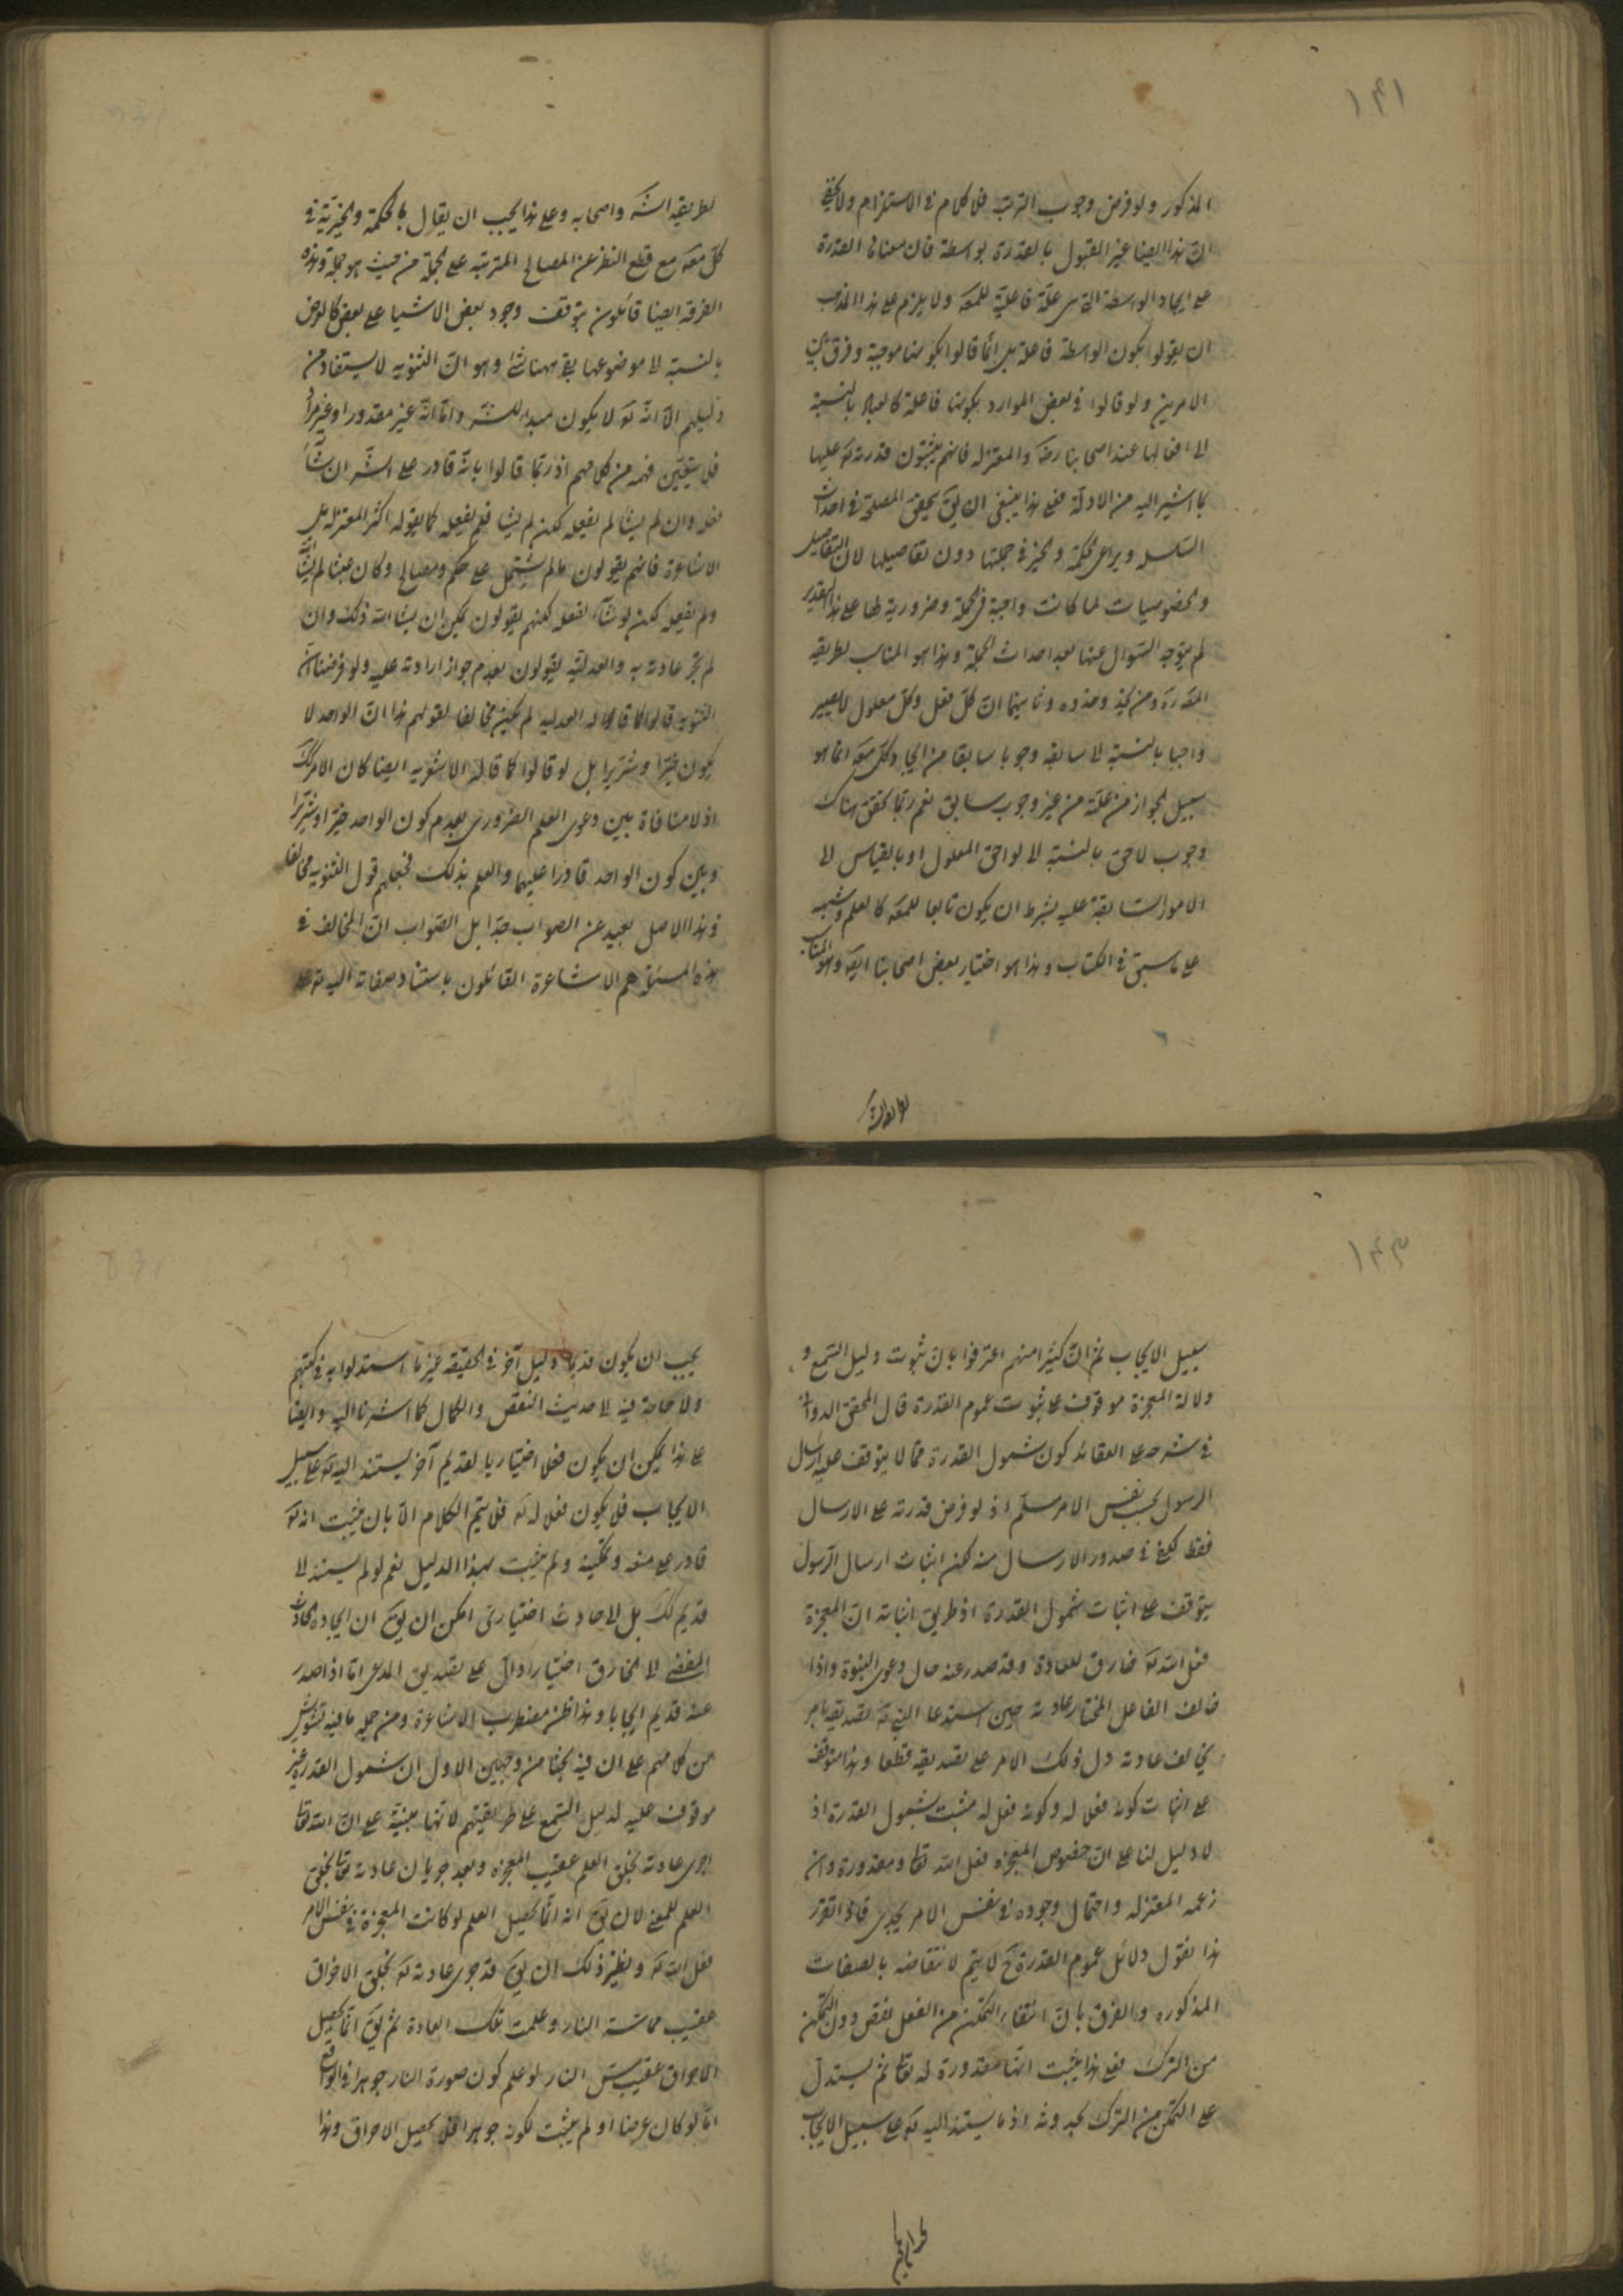 ١٤١
المذكور ولو فرض وجوب الترتب فلا كلام في الاستلزام ولا يخفى
ان هذا ايضا غير القبول بالقدرة بواسطة فان معناى القدرة
على ايجاد الواسطة التي هي علة فاعلية للمعه ولا يلزم على هذا المذهب
ان يقولوا بكون الواسطة فاعلة بل انما قالوا بكونها موجبة وفرق بين
الامرين ولو قالوا في بعض الموارد بكونها فاعلة كالعباد بالنسبة
الى افعالها عند اصحابنا رضه والمعتزله فانهم يثبتون قدرته تعه عليها
بما اشير اليه من الادلة فعلى هذا ينبغي ان يق يتحقق المصلحة في احداث
السلسله ويراعى الحكمة والخير في جملتها دون تفاصيلها لان التفاصيل
والخصوصيات لما كانت واجبة في الجملة وضرورية لها على هذا التقدير
لم يتوجه السؤال عنها بعد احداث الجملة وهذا هو المناسب لطريقه
المعه ره ومن يحذو حذوه وثانيهما ان كل فعل وكل معلول لا يصير
واجبا بالنسبة الى سابقه وجوبا سابقا من ايجاد كل معه انما هو
سبيل الجواز من علة من غير وجوب سابق نعم ربما تحقق هناك
وجوب لاحق بالنسبة الى لواحق المعلول او بالقياس الى
الامور السابقة عليه بشرط ان يكون تابعا للمعه كالعلم وشبهه
على ما سبق في الكتاب وهذا هو اختيار بعض اصحابنا ايضه وهو المناسب
لطريقه الشه
لطريقه الشه واصحابه وعلى هذا يجب ان يقال بالحكمة والخيرية في
كل معه مع قطع النظر عن المصالح المترتبه على الجملة من حيث هو جملة وهذه
الفرقه ايضا قائلون بتوقف وجود بعض الاشيا على بعض كالعرض
بالنسبة الى موضوعها بقي ههنا شئ وهو ان الثنويه لا يستفاد من
دليلهم الا انه تعه لا يكون مبدا للشه واما انه غير مقدور او غير مراد
فلا يتعين فهمه من كلامهم اذ ربما قالوا بانه قادر على الشه ان شاء
فعل وان لم يشا لم يفعل لكن لم يشا فلم يفعل كما يقوله اكثر المعتزله بل
الاشاعرة فانهم يقولون ما لم يشتمل على حكم ومصالح وكان عبثا لم يشأ
ولم يفعل لكن لو شاء لفعل لكنهم يقولون يمكن ان يشا الله ذلك وان
لم تجر عادته به والعدليه يقولون بعدم جواز ارادته عليه ولو فرضنا ان
الثنويه قالوا كما قاله العدليه لم يكن مخالفا لقولهم هذا ان الواحد لا
يكون خيرا وشريرا بل لو قالوا كما قالته الاشعريه ايضا كان الامر كك
اذ لا منافاة بين دعوى العلم الضروري بعدم كون الواحد خيرا وشريرا
وبين كون الواحد قادرا عليهما والعلم بذلك فجعلهم قول الثنويه مخالفا
وهذا الاصل بعيد عن الصواب جدا بل الصواب ان المخالف في
هذه المسئلة هم الاشاعرة القائلون باستناد صفاته اليه تعه على
١٤٢
سبيل الايجاب ثم ان كثيرا منهم اعترفوا بان ثبوت دليل السمع و
دلالة المعجزة موقوف على ثبوت عموم القدرة قال المحقق الدواني
في شرحه على العقائد كون شمول القدرة مما لا يتوقف عليه ارسال
الرسول بحسب نفس الامر مسلم اذ لو فرض قدرته على الارسال
فقط كفى في صدور الارسال منه لكن اثبات ارسال الرسول
يتوقف على اثبات شمول القدرة اذ طريق اثباته ان المعجزة
فعل الله تعه خارق للعادة وقد صدر عنه حال دعوى النبوة واذا
خالف الفاعل المختار عادته حين استدعا النبي تعه تصديقه بامر
يخالف عادته دل ذلك الامر على تصديقه قطعا وهذا متوقف
على اثبات كونه فعلا له وكونه فعلا له مثبت بشمول القدرة اذ
لا دليل لنا على ان خصوص المعجزه فعل الله تعا ومقدورة وان
زعمه المعتزله واحتمال وجوده في نفس الامر يجدى فاذا تقرر
هذا نقول دلائل عموم القدرة ح لا يتم لانتقاضه بالصفات
المذكوره والفرق بان انتفاء التمكن من الفعل نقص دون التمكن
من الترك فعلى هذا يثبت انها مقدورة له تعا ثم يستدل
على التمكن من الترك بحدوثه اذ ما يستند اليه تعه على سبيل الايجاب
يجب ان يكون قديما دليل آخر في الحقيقه غير ما استدلوا به في كتبهم
ولا حاجة فيه الى حديث النقص والكمال كما اشرنا اليه وايضا
على هذا يمكن ان يكون فعلا اختياريا لقديم آخر يستند اليه تعه على سبيل
الايجاب فلا يكون فعلا له تعه فلا يتم الكلام الا بان يثبت انه تعه
قادر على منعه وتمكينه ولم يثبت بهذا الدليل نعم لو لم يستند الى
قديم كك بل لا حادث اختيارى امكن ان يق ان ايجاده الحادث
المفضى الى الخارق اختيارا دال على تصديق المدعى اما اذا صدر
عنه قديم ايجابا وهذا ظن مضطرب الاشاعرة ومن جملة ما فيه تشويش
من كلامهم على ان فيه بحثا من وجهين الاول ان شمول القدرة غير
موقوف عليه لدليل السمع على طريقتهم لانها مبنية على ان الله تعا
اجرى عادته بخلق العلم عقيب المعجزه وبعد جريان عادته تعا بخلق
العلم للمعنى لان يق انه انما يحصل العلم لو كانت المعجزة في نفس الامر
فعل الله تعه ونظير ذلك ان يق قد جرى عادته تعه بخلق الاحراق
عقيب مماسة النار وعلمت تلك العادة ثم يق انما يحصل
الاحراق عقيب مس النار لو علم كون صورة النار جوهرا في الواقع
اما لو كان عرضا او لم يثبت لكونه جوهرا فلا يحصل الاحراق وهذا